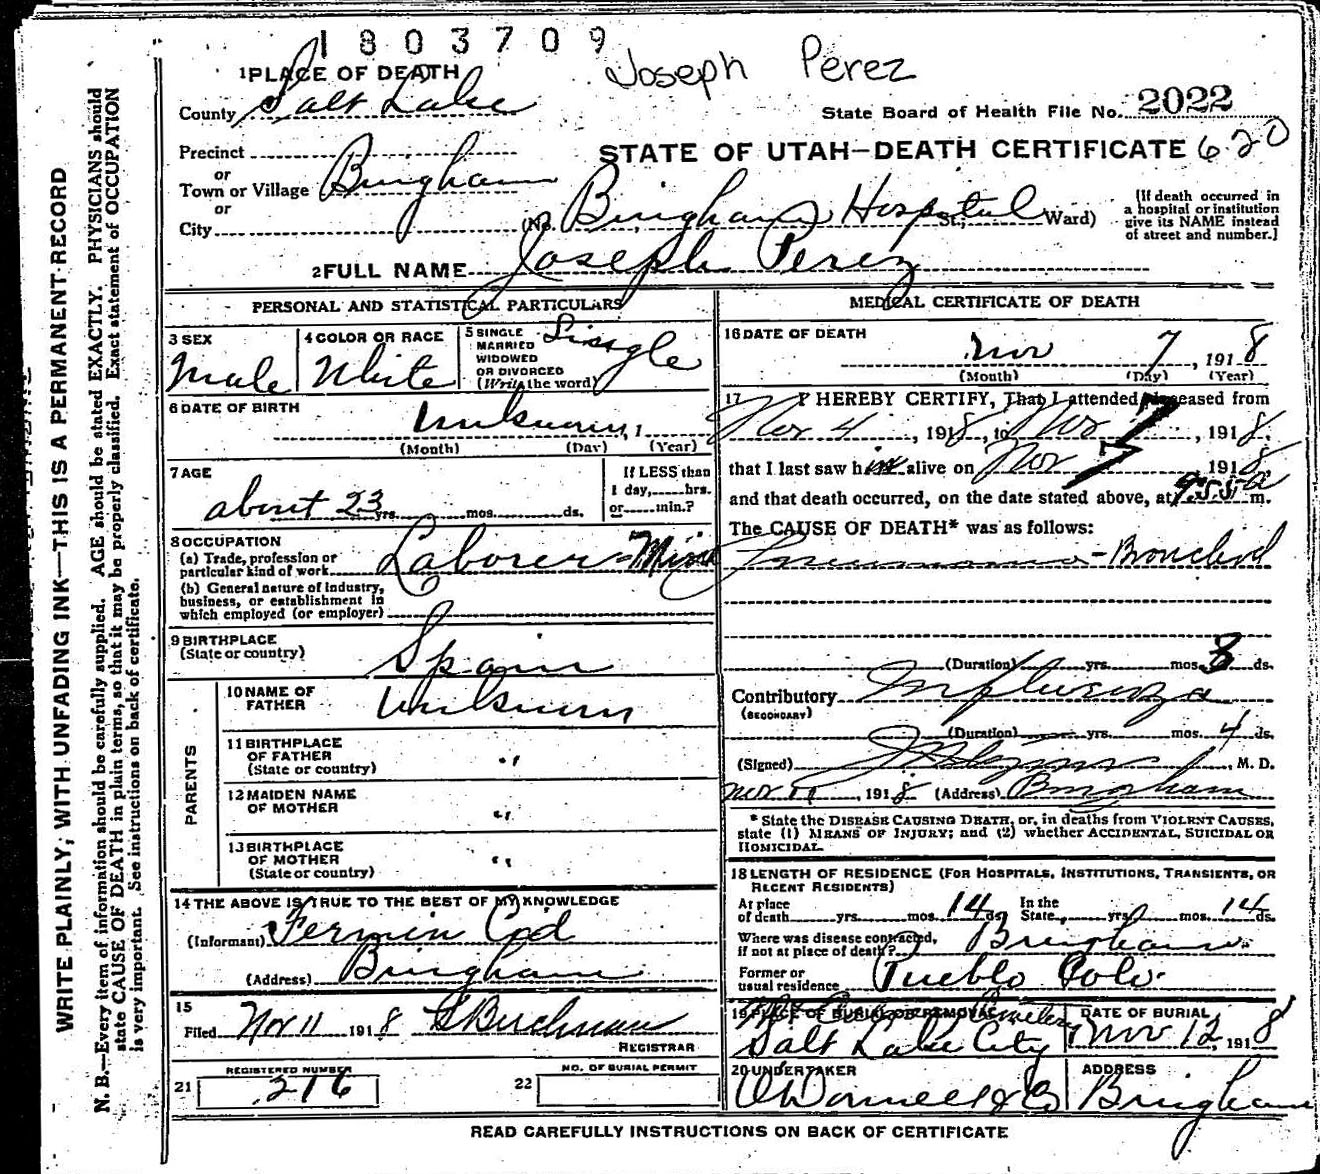 1803709
Joseph Perez
1 PLACE OF DEATH
County Salt Lake
State Board of Health File No. 2022
Precinct
or
Town or Village Bingham
or
City
STATE OF UTAH—DEATH CERTIFICATE 620
(No. Bingham Hospital St.; Ward)
[If death occurred in
a hospital or institution
give its NAME instead
of street and number.]
2 FULL NAME Joseph Perez
PERSONAL AND STATISTICAL PARTICULARS
3 SEX
Male
4 COLOR OR RACE
White
5 SINGLE
MARRIED
WIDOWED
OR DIVORCED
(Write the word)
Single
6 DATE OF BIRTH
Unknown, 1
(Month) (Day) (Year)
7 AGE
about 23 yrs. mos. ds.
If LESS than
1 day, hrs.
or min.?
8 OCCUPATION
(a) Trade, profession or
particular kind of work Laborer-Mine
(b) General nature of industry,
business, or establishment in
which employed (or employer)
9 BIRTHPLACE
(State or country)
Spain
PARENTS
10 NAME OF
FATHER
Unknown
11 BIRTHPLACE
OF FATHER
(State or country)
"
12 MAIDEN NAME
OF MOTHER
"
13 BIRTHPLACE
OF MOTHER
(State or country)
"
14 THE ABOVE IS TRUE TO THE BEST OF MY KNOWLEDGE
(Informant) Fermin Cid
(Address) Bingham
15
Filed Nov 11 1918
REGISTRAR
REGISTERED NUMBER
21 216
NO. OF BURIAL PERMIT
22
MEDICAL CERTIFICATE OF DEATH
16 DATE OF DEATH
Nov 7, 1918
(Month) (Day) (Year)
17 I HEREBY CERTIFY, That I attended deceased from
Nov 4, 1918, to Nov 7, 1918,
that I last saw him alive on Nov 7 1918,
and that death occurred, on the date stated above, at m.
The CAUSE OF DEATH* was as follows:
Pneumonia-Bronchial
(Duration) yrs. mos. 3 ds.
Contributory Influenza
(SECONDARY)
(Duration) yrs. mos. 4 ds.
(Signed) , M. D.
Nov 11, 1918 (Address) Bingham
* State the DISEASE CAUSING DEATH, or, in deaths from VIOLENT CAUSES,
state (1) MEANS OF INJURY; and (2) whether ACCIDENTAL, SUICIDAL OR
HOMICIDAL.
18 LENGTH OF RESIDENCE (FOR HOSPITALS, INSTITUTIONS, TRANSIENTS, OR
RECENT RESIDENTS)
At place
of death yrs. mos. 14 ds.
In the
State, yrs. mos. 14 ds.
Where was disease contracted,
if not at place of death? Bingham
Former or
usual residence Pueblo Colo.
19 PLACE OF BURIAL OR REMOVAL
Cemetery
Salt Lake City
DATE OF BURIAL
Nov 12, 1918
20 UNDERTAKER
O'Donnell & Co
ADDRESS
Bingham
READ CAREFULLY INSTRUCTIONS ON BACK OF CERTIFICATE
WRITE PLAINLY; WITH UNFADING INK—THIS IS A PERMANENT RECORD
N. B.—Every item of information should be carefully supplied. AGE should be stated EXACTLY. PHYSICIANS should
state CAUSE OF DEATH in plain terms, so that it may be properly classified. Exact statement of OCCUPATION
is very important. See instructions on back of certificate.